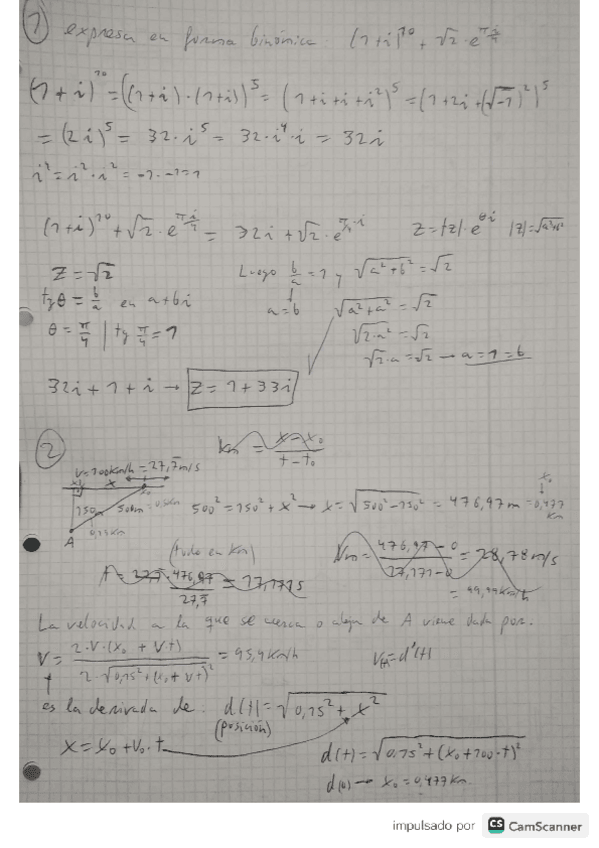 1 expresa en forma binómica: (1+i)^10 + √2 · e^(π i/4)
(1+i)^10 = ((1+i)·(1+i))^5 = (1+i+i+i²)^5 = (1+2i+(√-1)²)^5
= (2i)^5 = 32·i^5 = 32·i^4·i = 32i
i^4 = i²·i² = -1·-1=1
(1+i)^10 + √2 · e^(π i/4) = 32i + √2 · e^(π/4·i) Z=|z|·e^(θi) |z|=√a²+b²
Z=√2 Luego b/a = 1 y √a²+b² = √2
tgθ = b/a en a+bi a=b √a²+a² = √2
θ = π/4 | tg π/4 = 1 √2·a² = √2
√2·a=√2 → a=1=b
32i+1+i → Z=1+33i
2
v=100km/h=27,7m/s
150m 500m=0,5km
500²=150²+x² → x=√500²-150² = 476,97m =0,477 km
A
(todo en km)
La velocidad a la que se acerca o aleja de A viene dada por:
V = 2·V·(x₀ + V·t) / 2·√0,15²+(x₀+Vt)² = 95,4km/h V(t)=d'(t)
es la derivada de: d(t)=√0,15²+x²
(posición)
x=x₀+v₀·t
d(t)=√0,15²+(x₀+100·t)²
d(0) → x₀=0,477km
impulsado por CS CamScanner